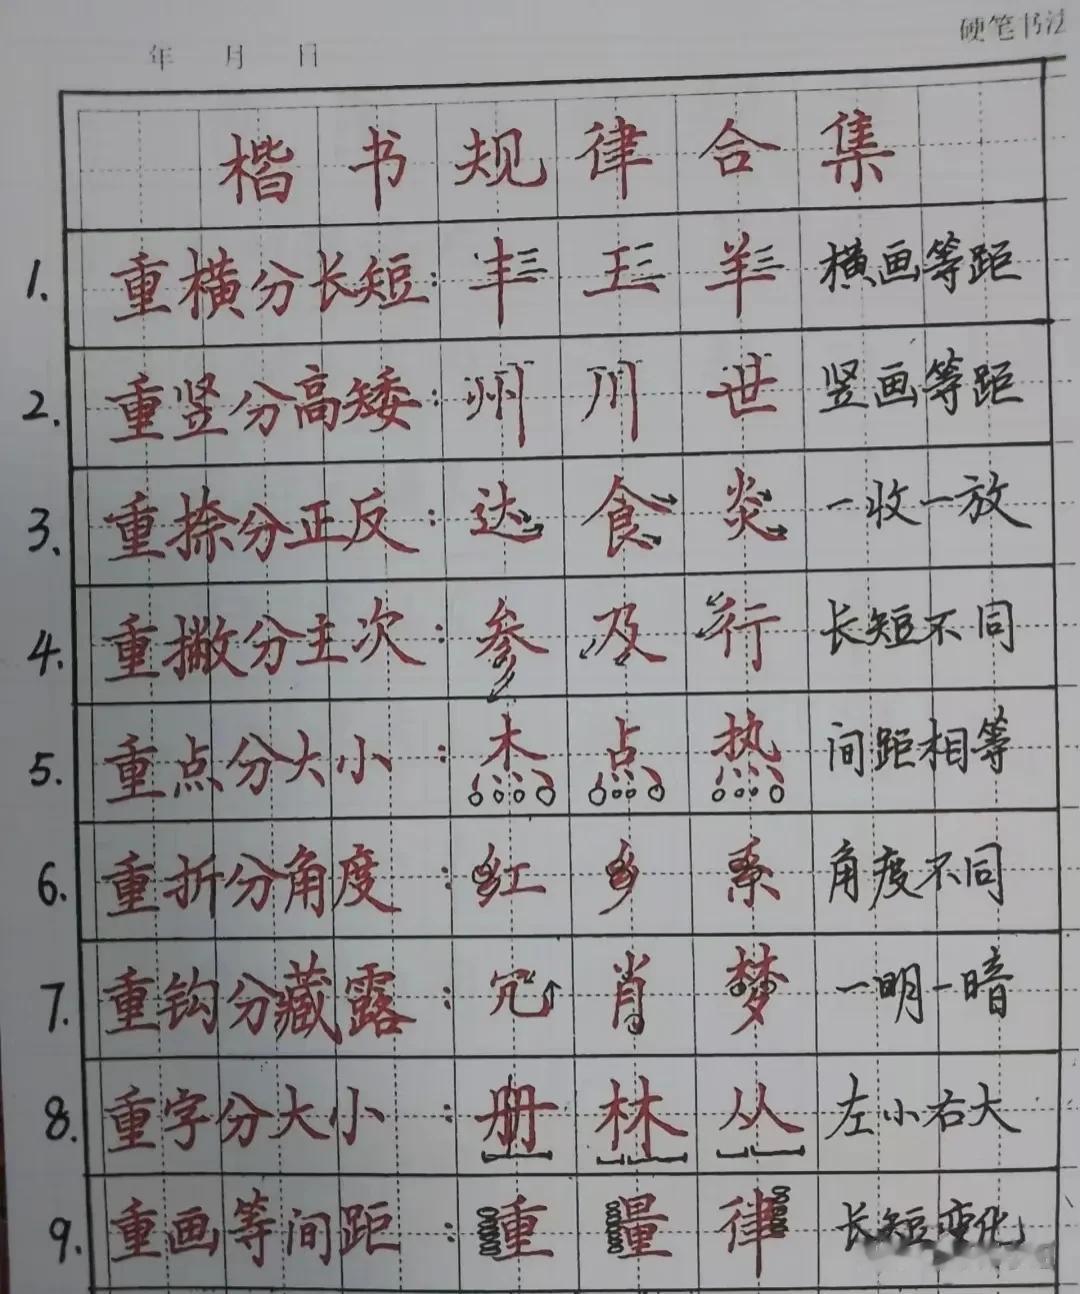 硬笔书法
年 月 日
楷书规律合集
1. 重横分长短: 丰 王 羊 横画等距
2. 重竖分高矮: 州 川 世 竖画等距
3. 重捺分正反: 达 食 炎 一收一放
4. 重撇分主次: 参 及 行 长短不同
5. 重点分大小: 杰 点 热 间距相等
6. 重折分角度: 红 乡 系 角度不同
7. 重钩分藏露: 冗 肖 梦 一明一暗
8. 重字分大小: 册 林 从 左小右大
9. 重画等间距: 重 量 律 长短变化